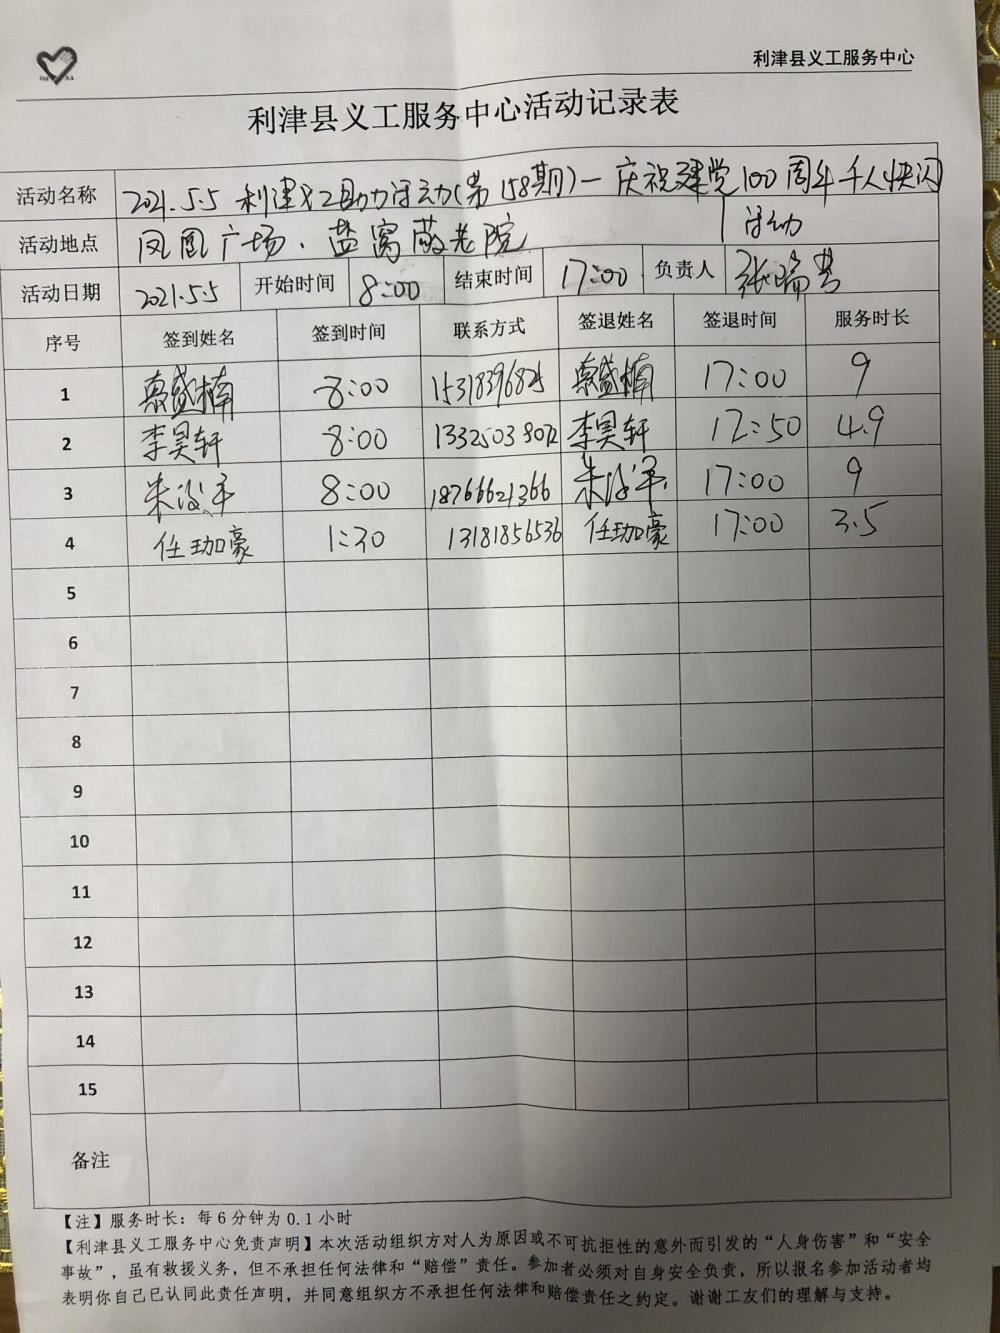 利津县义工服务中心
利津县义工服务中心活动记录表
活动名称 2021.5.5 利津义工助力活动(第158期)—庆祝建党100周年千人快闪
活动
活动地点 凤凰广场、盐窝敬老院
活动日期 2021.5.5 开始时间 8:00 结束时间 17:00 负责人 张瑞芸
序号 签到姓名 签到时间 联系方式 签退姓名 签退时间 服务时长
1 盛楠 8:00 盛楠 17:00 9
2 李昊轩 8:00 李昊轩 12:50 4.9
3 朱 8:00 18766621366 朱 17:00 9
4 任珈豪 1:30 13181856536 任珈豪 17:00 3.5
5
6
7
8
9
10
11
12
13
14
15
备注
【注】服务时长：每6分钟为0.1小时
【利津县义工服务中心免责声明】本次活动组织方对人为原因或不可抗拒性的意外而引发的“人身伤害”和“安全
事故”，虽有救援义务，但不承担任何法律和“赔偿”责任。参加者必须对自身安全负责，所以报名参加活动者均
表明你自己已认同此责任声明，并同意组织方不承担任何法律和赔偿责任之约定。谢谢工友们的理解与支持。